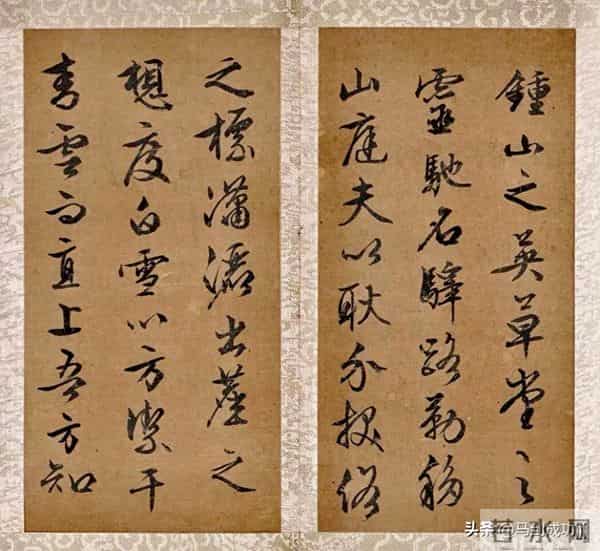 鍾山之英草堂之
靈馳名驛路勒移
山庭夫以耿介拔俗
之標瀟灑出塵之
想度白雪以方潔干
青雲而直上吾方知